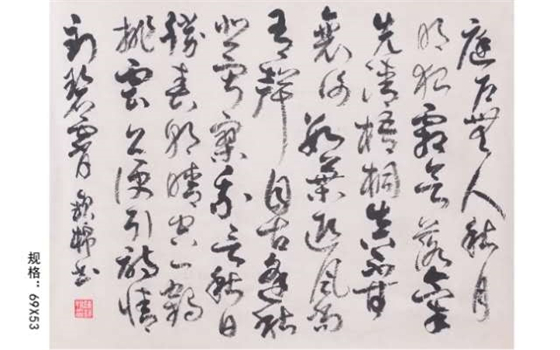 庭户無人秋月
明夜霜欲落氣
先清梧桐真不甘
衰謝数葉迎風尚
有聲自古逢秋
悲寂寥我言秋日
勝春朝晴空一鶴
排雲上便引詩情
到碧霄
书
规格：69X53